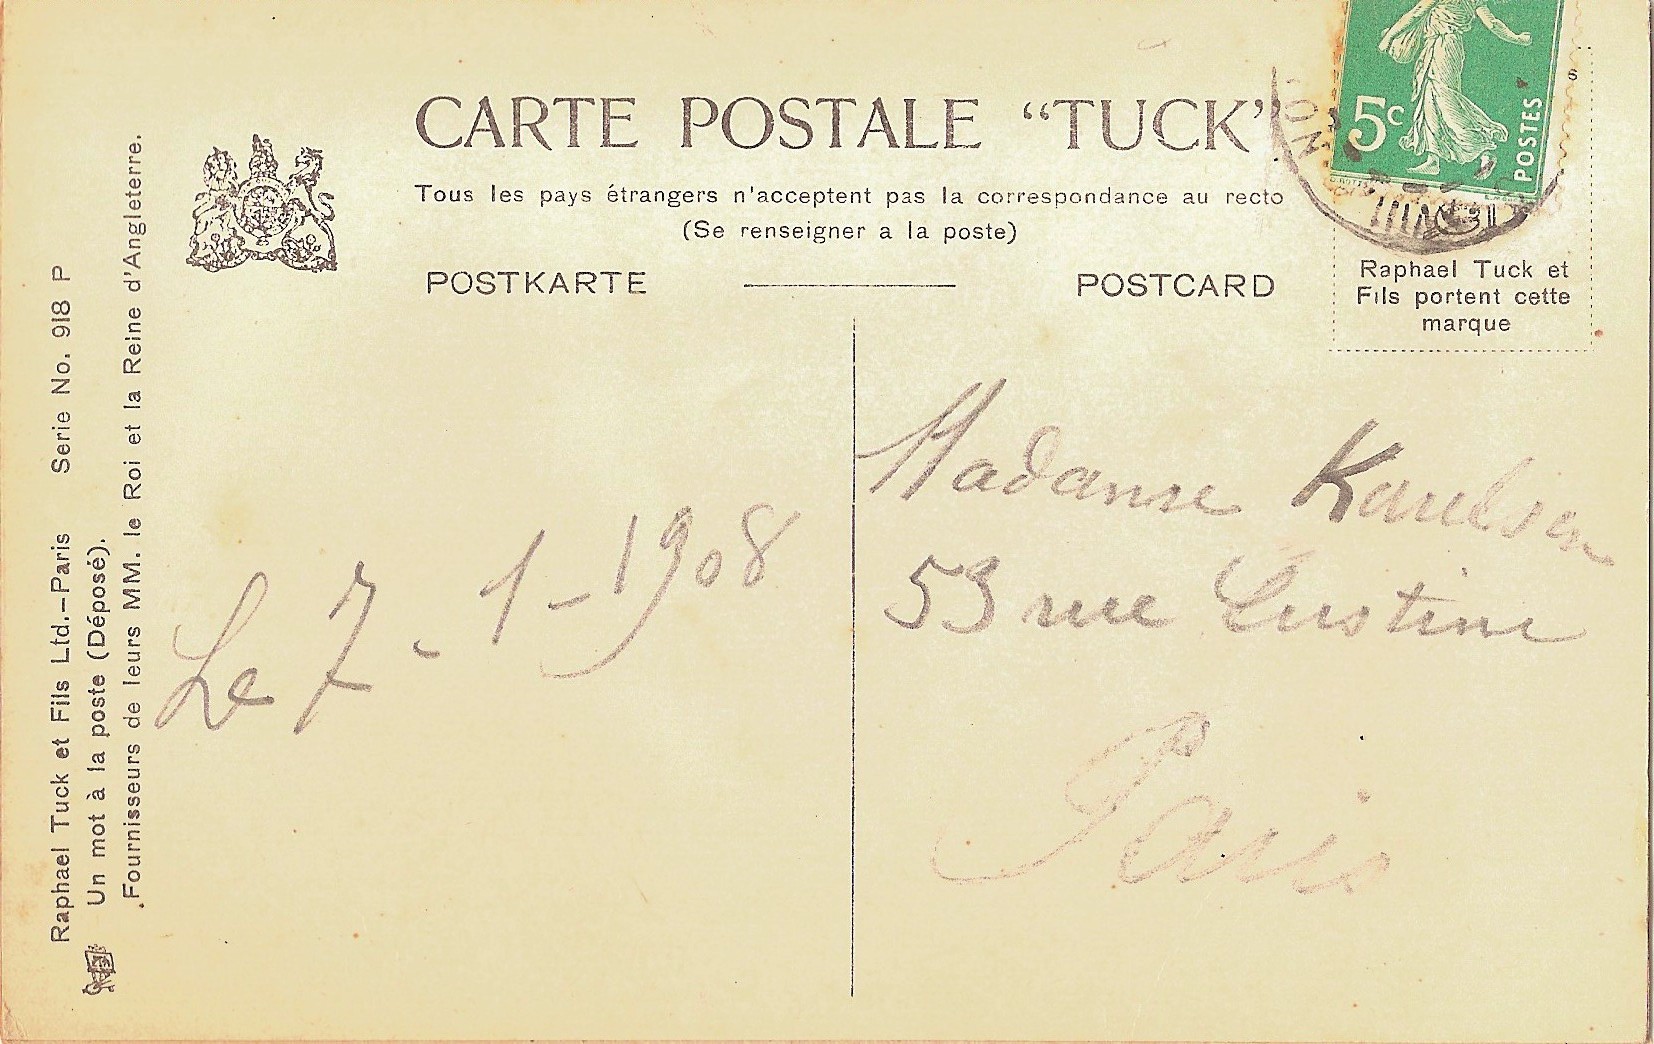 CARTE POSTALE “TUCK”
Tous les pays étrangers n'acceptent pas la correspondance au recto
(Se renseigner a la poste)
POSTKARTE POSTCARD
5c
POSTES
Raphael Tuck et
Fils portent cette
marque
Raphael Tuck et Fils Ltd.–Paris Serie No. 918 P
Un mot à la poste (Déposé).
Fournisseurs de leurs MM. le Roi et la Reine d'Angleterre.
Le 7 - 1 - 1908
Madame
53 rue Custine
Paris